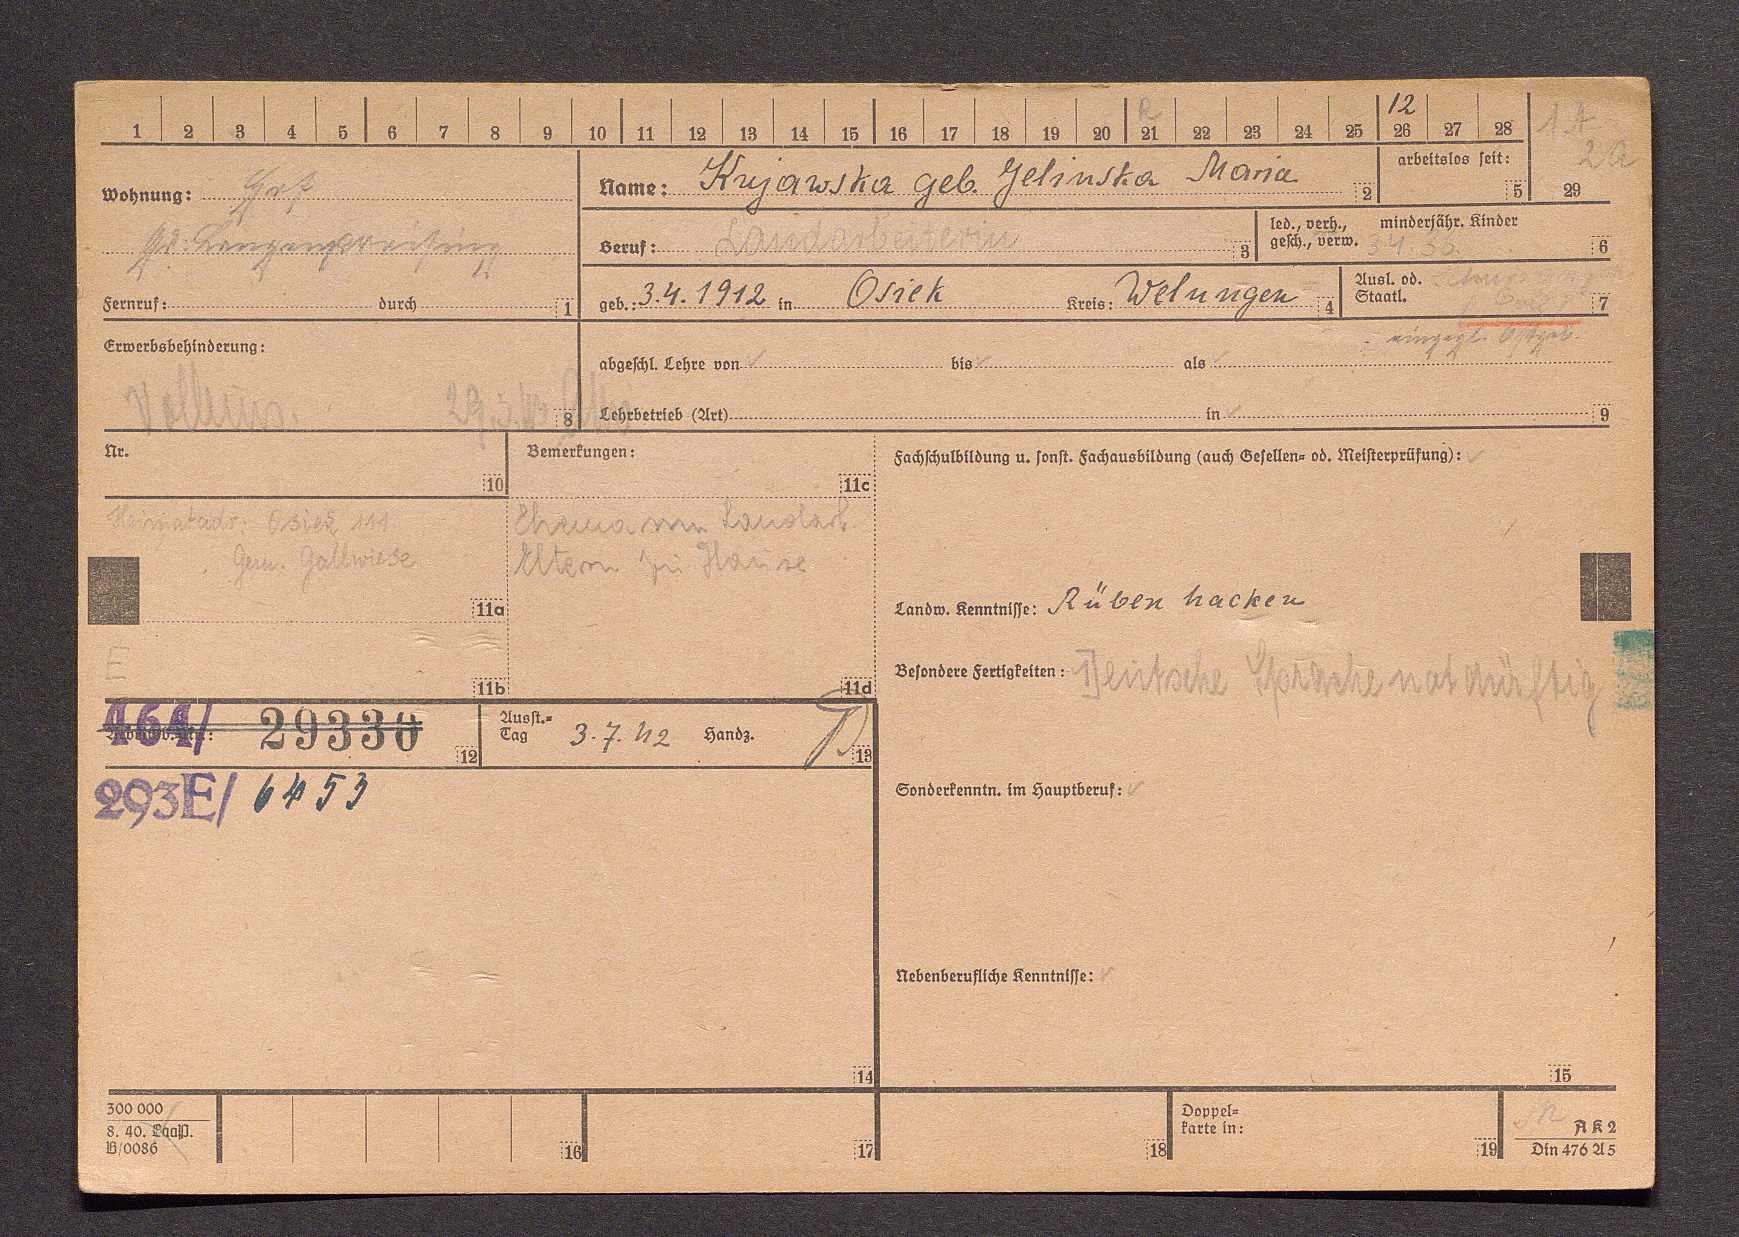 1 2 3 4 5 6 7 8 9 10 11 12 13 14 15 16 17 18 19 20 21 22 23 24 25 26 27 28
R
12
1 A
2a
29
Wohnung:
Fernruf: durch 1
Name: Kujawska geb. Jelinska Maria 2
arbeitslos seit: 5
Beruf: Landarbeiterin 3
led., verh., minderjähr. Kinder
gesch., verw. 34. 36. 6
geb.: 3.4.1912 in Osiek Kreis: Welungen 4
Ausl. od.
Staatl. 7
eingegl. Ostgeb.
Erwerbsbehinderung:
8
abgeschl. Lehre von bis als
Lehrbetrieb (Art) in 9
Nr. 10
Bemerkungen: 11c
Heimatadr. Osiek 111
Gem. Gallwiese
11a
E
11b
Ehemann Landarb.
Eltern zu Hause
11d
Fachschulbildung u. sonst. Fachausbildung (auch Gesellen= od. Meisterprüfung):
Landw. Kenntnisse: Rüben hacken
Besondere Fertigkeiten: Deutsche Sprache notdürftig
464/ 29330 12
Ausst.=
Tag 3.7.42 Handz. 13
293E/ 6453
Sonderkenntn. im Hauptberuf:
Nebenberufliche Kenntnisse:
14
15
300 000
8. 40. LaaP.
B/0086
16
17
18
Doppel=
karte in: 19
AK2
Din 476 A5